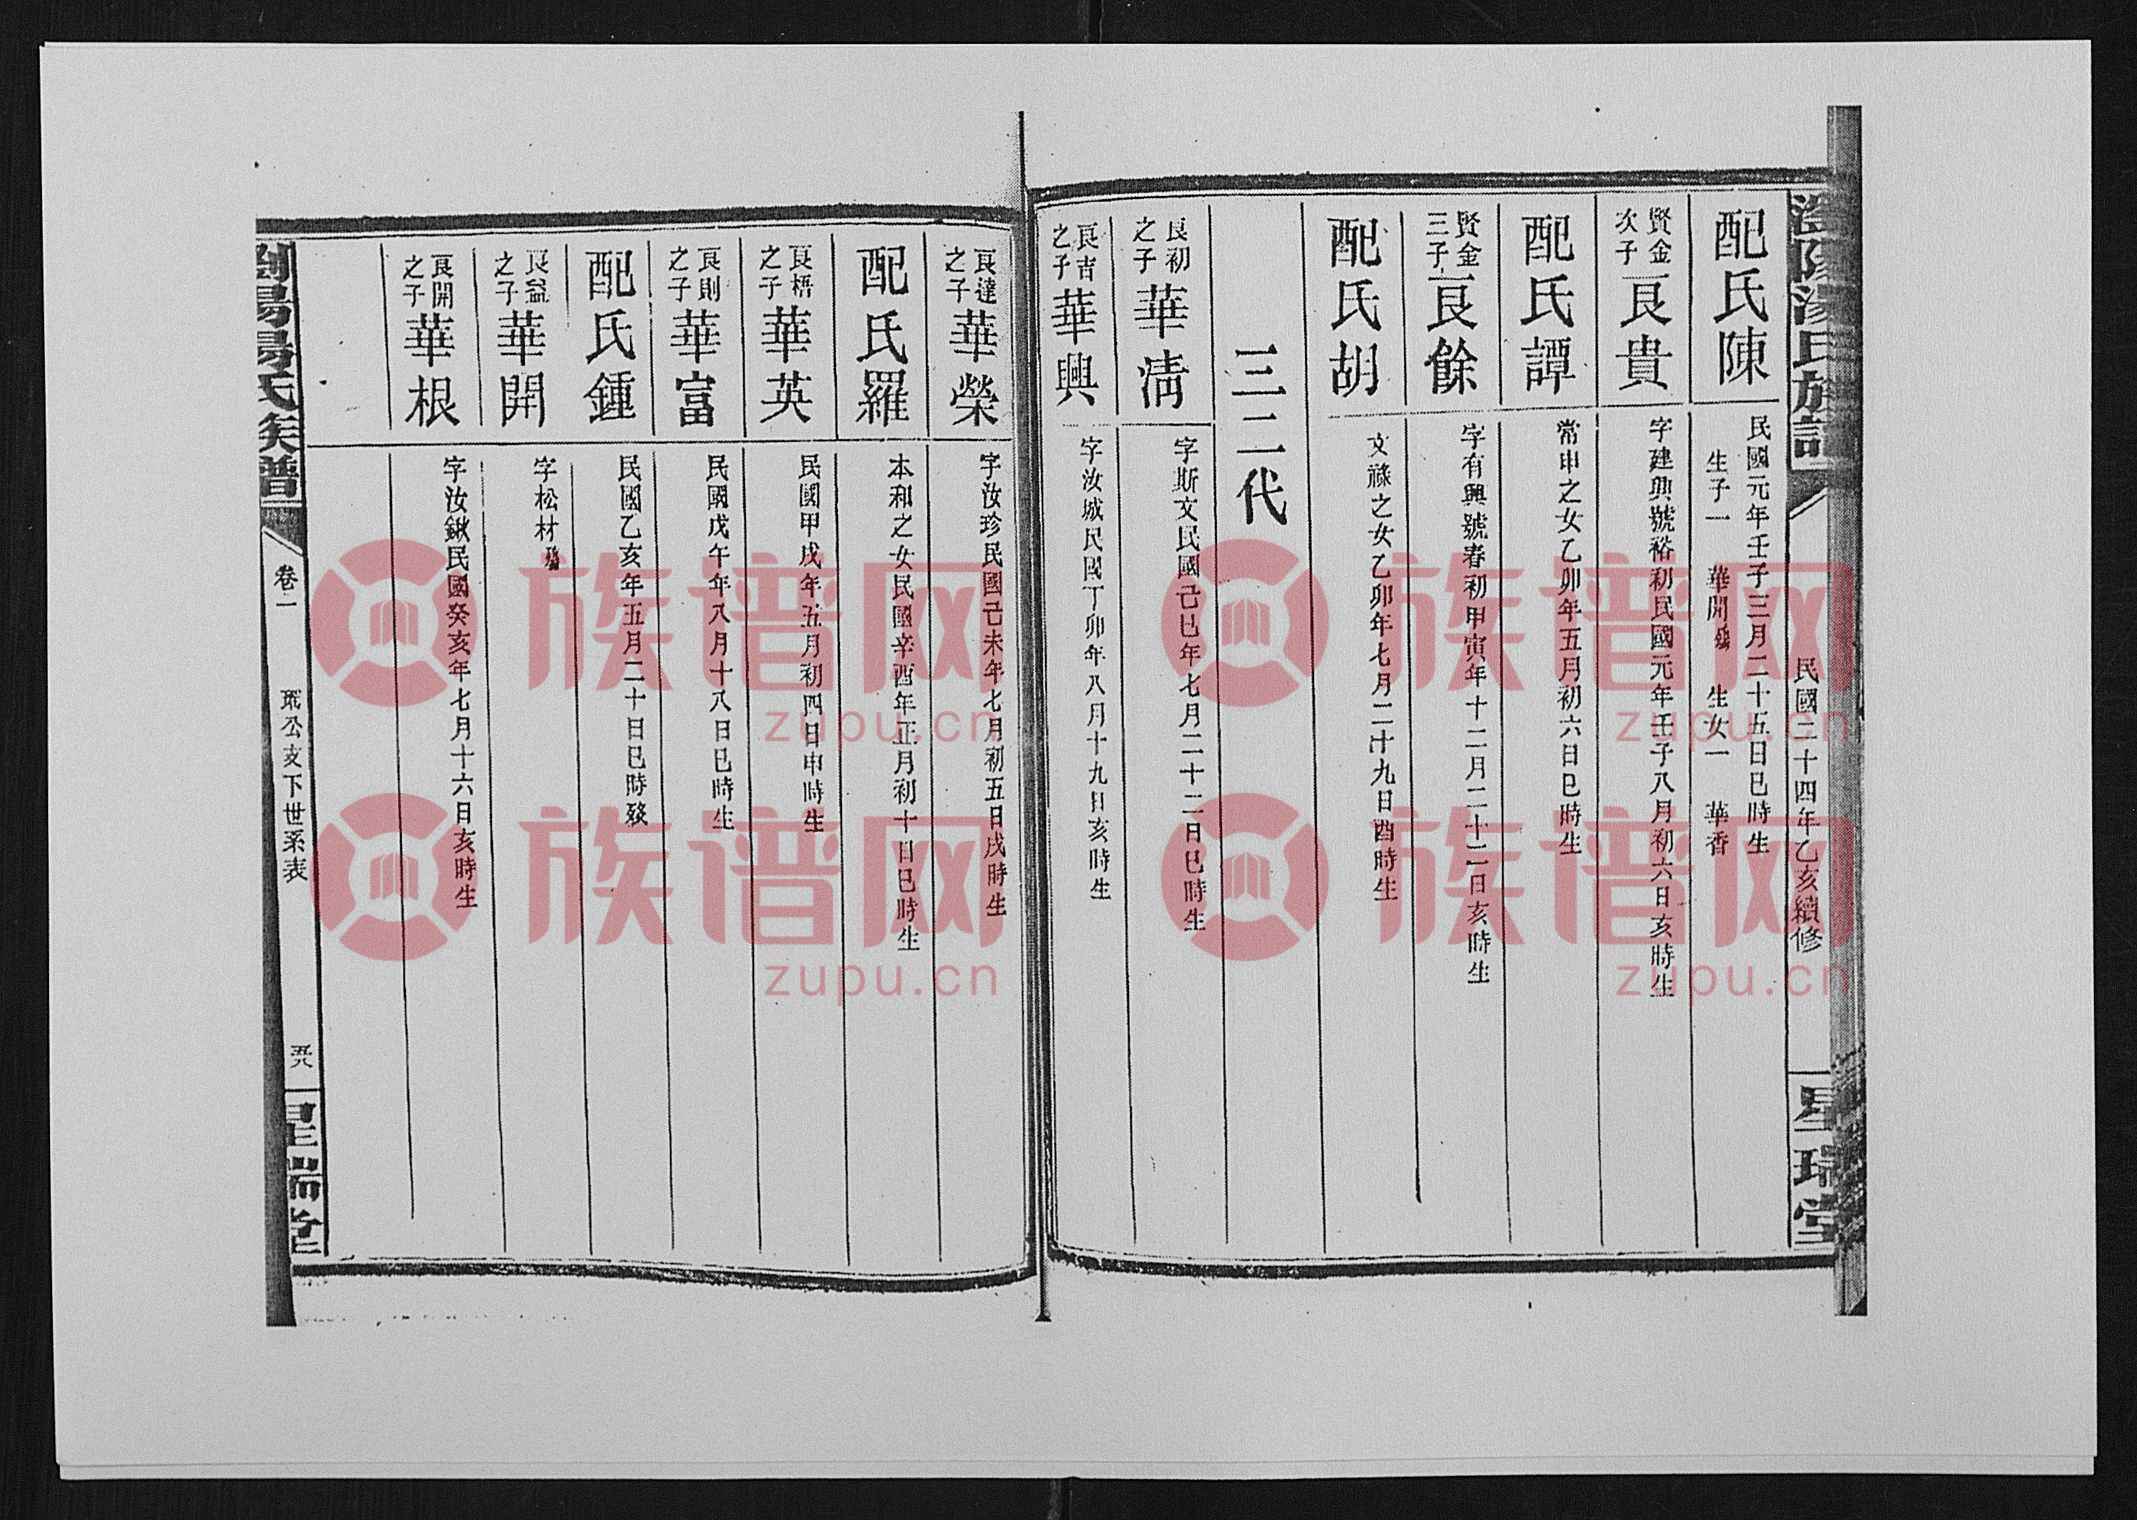 民國二十四年乙亥續修
星瑞堂
配氏陳
民國元年壬子三月二十五日巳時生
生子一 華開 生女一 華香
賢金次子
良貴
字建興號裕初民國元年壬子八月初六日亥時生
配氏譚
常申之女乙卯年五月初六日巳時生
賢金三子
良餘
字有興號春初甲寅年十二月二十二日亥時生
配氏胡
文祿之女乙卯年七月二十九日酉時生
三二代
良初之子
華清
字斯文民國己巳年七月二十二日巳時生
良吉之子
華興
字汝城民國丁卯年八月十九日亥時生
良達之子
華榮
字汝珍民國己未年七月初五日戌時生
配氏羅
本和之女民國辛酉年正月初十日巳時生
良梧之子
華英
民國甲戌年五月初四日申時生
良則之子
華富
民國戊午年八月十八日巳時生
配氏鍾
民國乙亥年五月二十日巳時發
良益之子
華開
字松材
良開之子
華根
字汝鍬民國癸亥年七月十六日亥時生
瀏陽湯氏族譜
卷一
公支下世系表
五八
星瑞堂
族谱网
zupu.cn
族谱网
zupu.cn
族谱网
zupu.cn
族谱网
zupu.cn